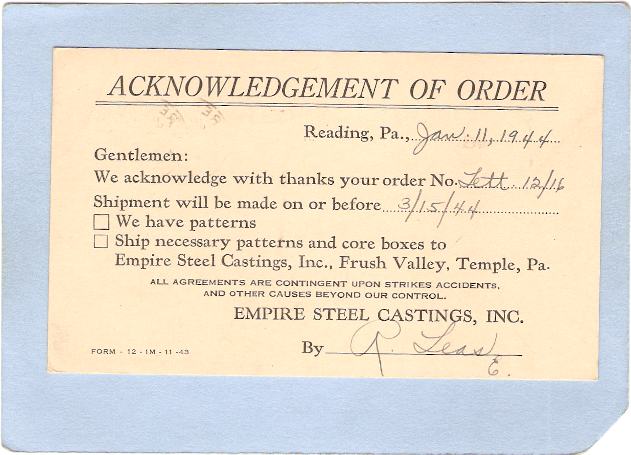 ACKNOWLEDGEMENT OF ORDER
Reading, Pa., Jan. 11, 1944
Gentlemen:
We acknowledge with thanks your order No. Lett. 12/16
Shipment will be made on or before 3/15/44
We have patterns
Ship necessary patterns and core boxes to
Empire Steel Castings, Inc., Frush Valley, Temple, Pa.
ALL AGREEMENTS ARE CONTINGENT UPON STRIKES ACCIDENTS,
AND OTHER CAUSES BEYOND OUR CONTROL.
EMPIRE STEEL CASTINGS, INC.
By R. Leas
E.
FORM - 12 - 1M - 11 - 43